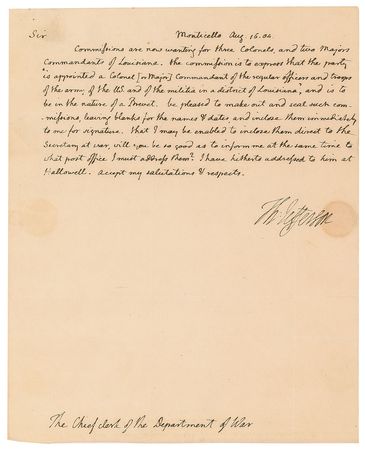 Sir Monticello Aug. 16. 04
Commissions are now wanting for three Colonels, and two Majors
Commandants of Louisiana. the commission is to express that the party
is appointed a Colonel [or Major] Commandant of the regular officers and troops
of the army of the US. and of the militia in a district of Louisiana, and is to
be in the nature of a Brevet. be pleased to make out and seal such com-
-missions, leaving blanks for the names & dates and inclose them immediately
to me for signature. that I may be enabled to inclose them direct to the
Secretary at war, will you be so good as to inform me at the same time to
what post office I must address them? I have hitherto addressed to him at
Hallowell. accept my salutations & respects.
Th: Jefferson
The Chief clerk of the Department of War